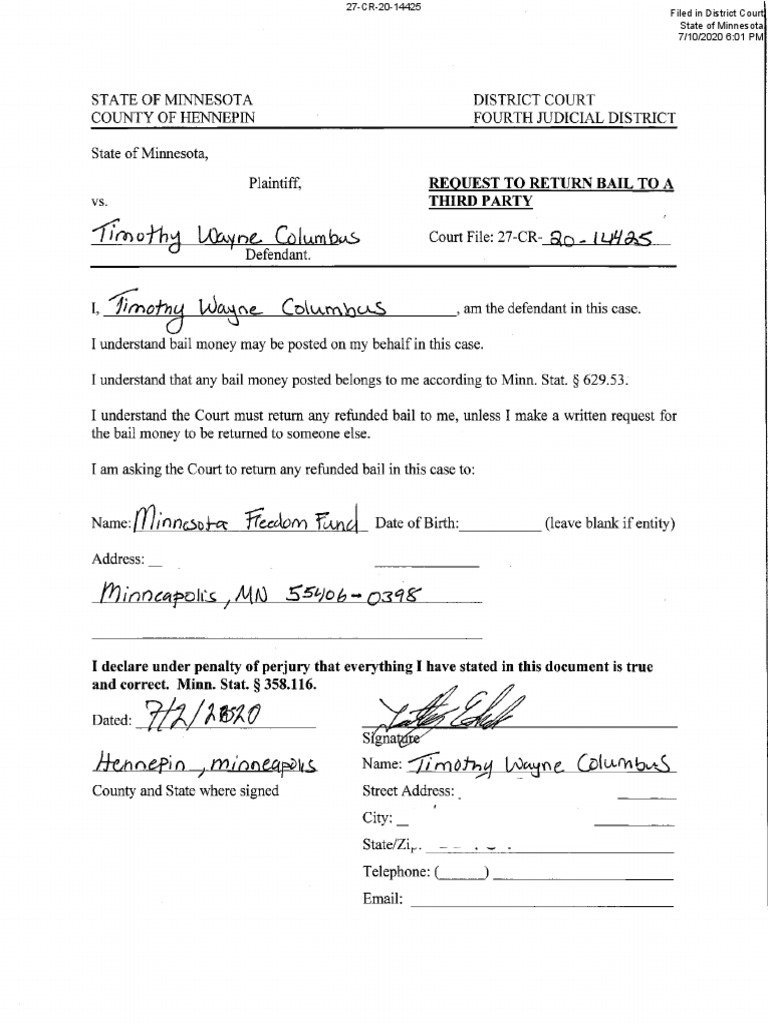 27-CR-20-14425
Filed in District Court
State of Minnesota
7/10/2020 6:01 PM
STATE OF MINNESOTA DISTRICT COURT
COUNTY OF HENNEPIN FOURTH JUDICIAL DISTRICT
State of Minnesota,
Plaintiff, REQUEST TO RETURN BAIL TO A
vs. THIRD PARTY
Timothy Wayne Columbus Court File: 27-CR- 20-14425
Defendant.
I, Timothy Wayne Columbus, am the defendant in this case.
I understand bail money may be posted on my behalf in this case.
I understand that any bail money posted belongs to me according to Minn. Stat. § 629.53.
I understand the Court must return any refunded bail to me, unless I make a written request for
the bail money to be returned to someone else.
I am asking the Court to return any refunded bail in this case to:
Name: Minnesota Freedom Fund Date of Birth: (leave blank if entity)
Address:
Minneapolis, MN 55406-0398
I declare under penalty of perjury that everything I have stated in this document is true
and correct. Minn. Stat. § 358.116.
Dated: 7/2/2020
Signature
Hennepin, minneapolis Name: Timothy Wayne Columbus
County and State where signed Street Address:
City:
State/Zip.
Telephone: ( )
Email: